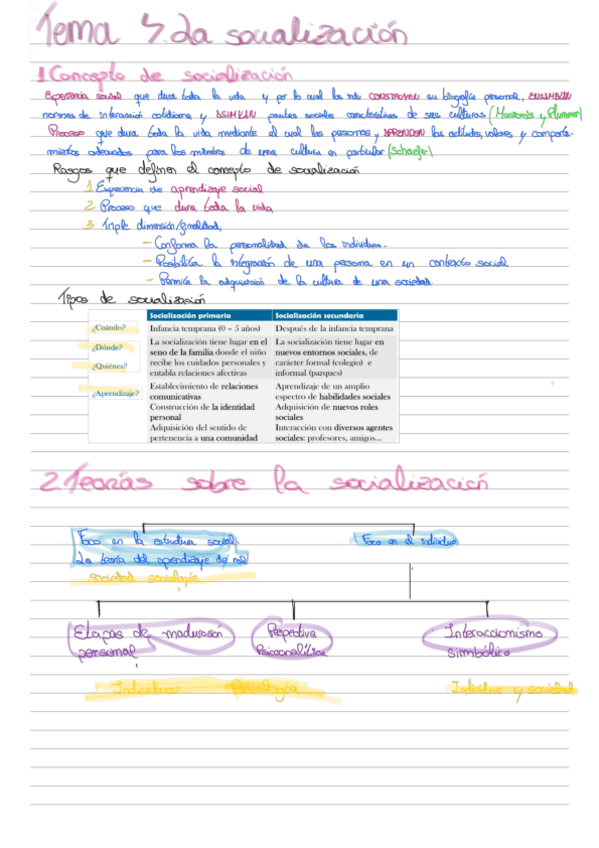 Tema 5. La socialización
1 Concepto de socialización
Experiencia social que dura toda la vida y por lo cual los indv CONSTRUYEN su biografía personal,
normas de interacción cotidiana y ASIMILAN pautas sociales características de sus culturas (Macionis y Plummer)
Proceso que dura toda la vida mediante el cual las personas y APRENDEN las actitudes, valores y comporta-
mientos adecuados para los miembros de una cultura en particular (Schaefer)
Rasgos que definen el concepto de socialización
1 Experiencia de aprendizaje social
2 Proceso que dura toda la vida
3 Triple dimensión/finalidad:
- Conforma la personalidad de los individuos.
- Posibilita la integración de una persona en un contexto social
- Permite la adquisición de la cultura de una sociedad.
Tipos de socialización
Socialización primaria Socialización secundaria
¿Cuándo? Infancia temprana (0 – 5 años) Después de la infancia temprana
¿Dónde? La socialización tiene lugar en el La socialización tiene lugar en
seno de la familia donde el niño nuevos entornos sociales, de
¿Quiénes? recibe los cuidados personales y carácter formal (colegio) e
entabla relaciones afectivas informal (parques)
¿Aprendizaje? Establecimiento de relaciones Aprendizaje de un amplio
comunicativas espectro de habilidades sociales
Construcción de la identidad Adquisición de nuevos roles
personal sociales
Adquisición del sentido de Interacción con diversos agentes
pertenencia a una comunidad sociales: profesores, amigos...
2 Teorías sobre la socialización
Foco en la estructura social Foco en el individuo
La teoría del aprendizaje de rol
sociedad sociología
Etapas de maduración Perspectiva Interaccionismo
personal Psicoanalítica simbólico
Individuo Psicología Individuo y sociedad